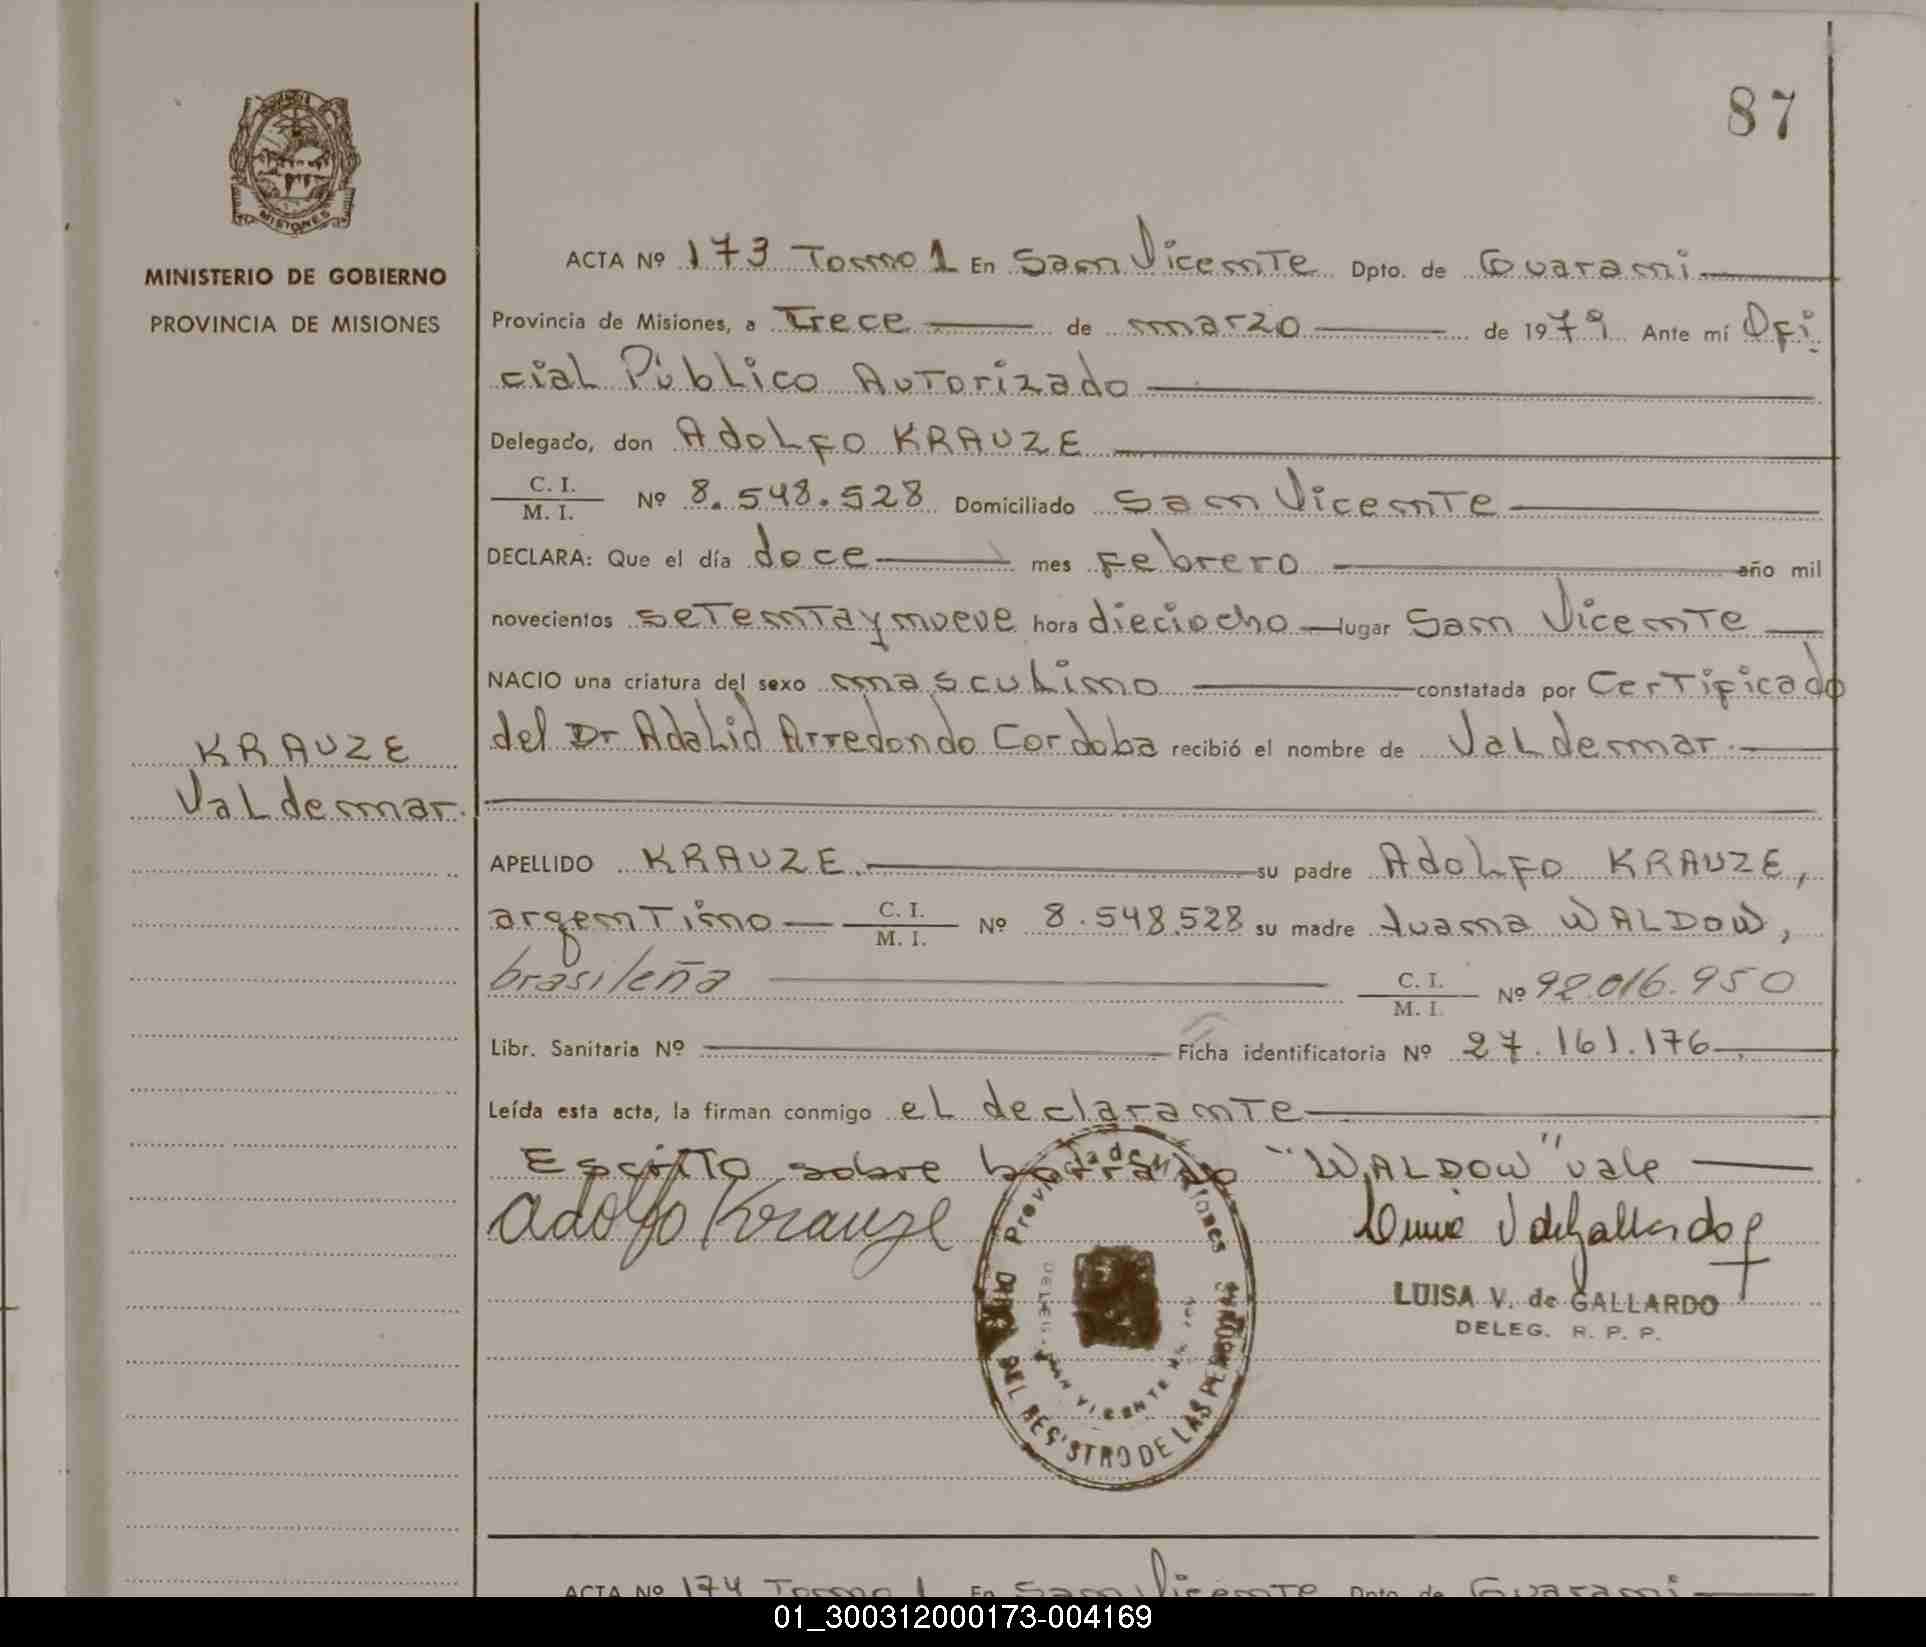 87
MISIONES
MINISTERIO DE GOBIERNO
PROVINCIA DE MISIONES
KRAUZE
Valdemar.
ACTA Nº 173 Tomo 1 En San Vicente Dpto. de Guarani
Provincia de Misiones, a Trece de marzo de 1979 Ante mí Ofi
cial Público Autorizado
Delegado, don Adolfo KRAUZE
C. I.
M. I. Nº 8.548.528 Domiciliado San Vicente
DECLARA: Que el día doce mes Febrero año mil
novecientos setenta y nueve hora dieciocho lugar San Vicente
NACIO una criatura del sexo masculino constatada por Certificado
del Dr Adalid Arredondo Cordoba recibió el nombre de Valdemar.
APELLIDO KRAUZE. su padre Adolfo KRAUZE,
argentino C. I. M. I. Nº 8.548.528 su madre Juana WALDOW,
brasileña C. I. M. I. Nº 92.016.950
Libr. Sanitaria Nº Ficha identificatoria Nº 27.161.176
Leída esta acta, la firman conmigo el declarante
Escrito sobre borrado "WALDOW" vale
Adolfo Krauze
LUISA V. de GALLARDO
DELEG. R. P. P.
Provincia de Misiones
DEL REGISTRO DE LAS PERSONAS
SAN VICENTE
ACTA Nº 174 Tomo 1 En San Vicente Dpto. de Guarani
01_300312000173-004169